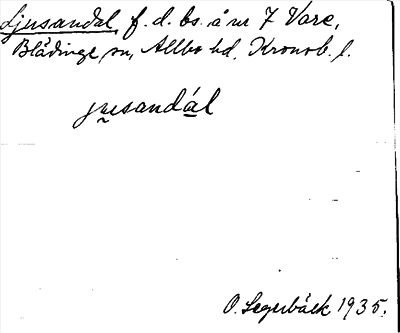 Ljusandal f. d. bs. å nr 7 Vare,
Blädinge sn, Allbo hd, Kronob. l.
jusandál
O. Segerbäck 1935.